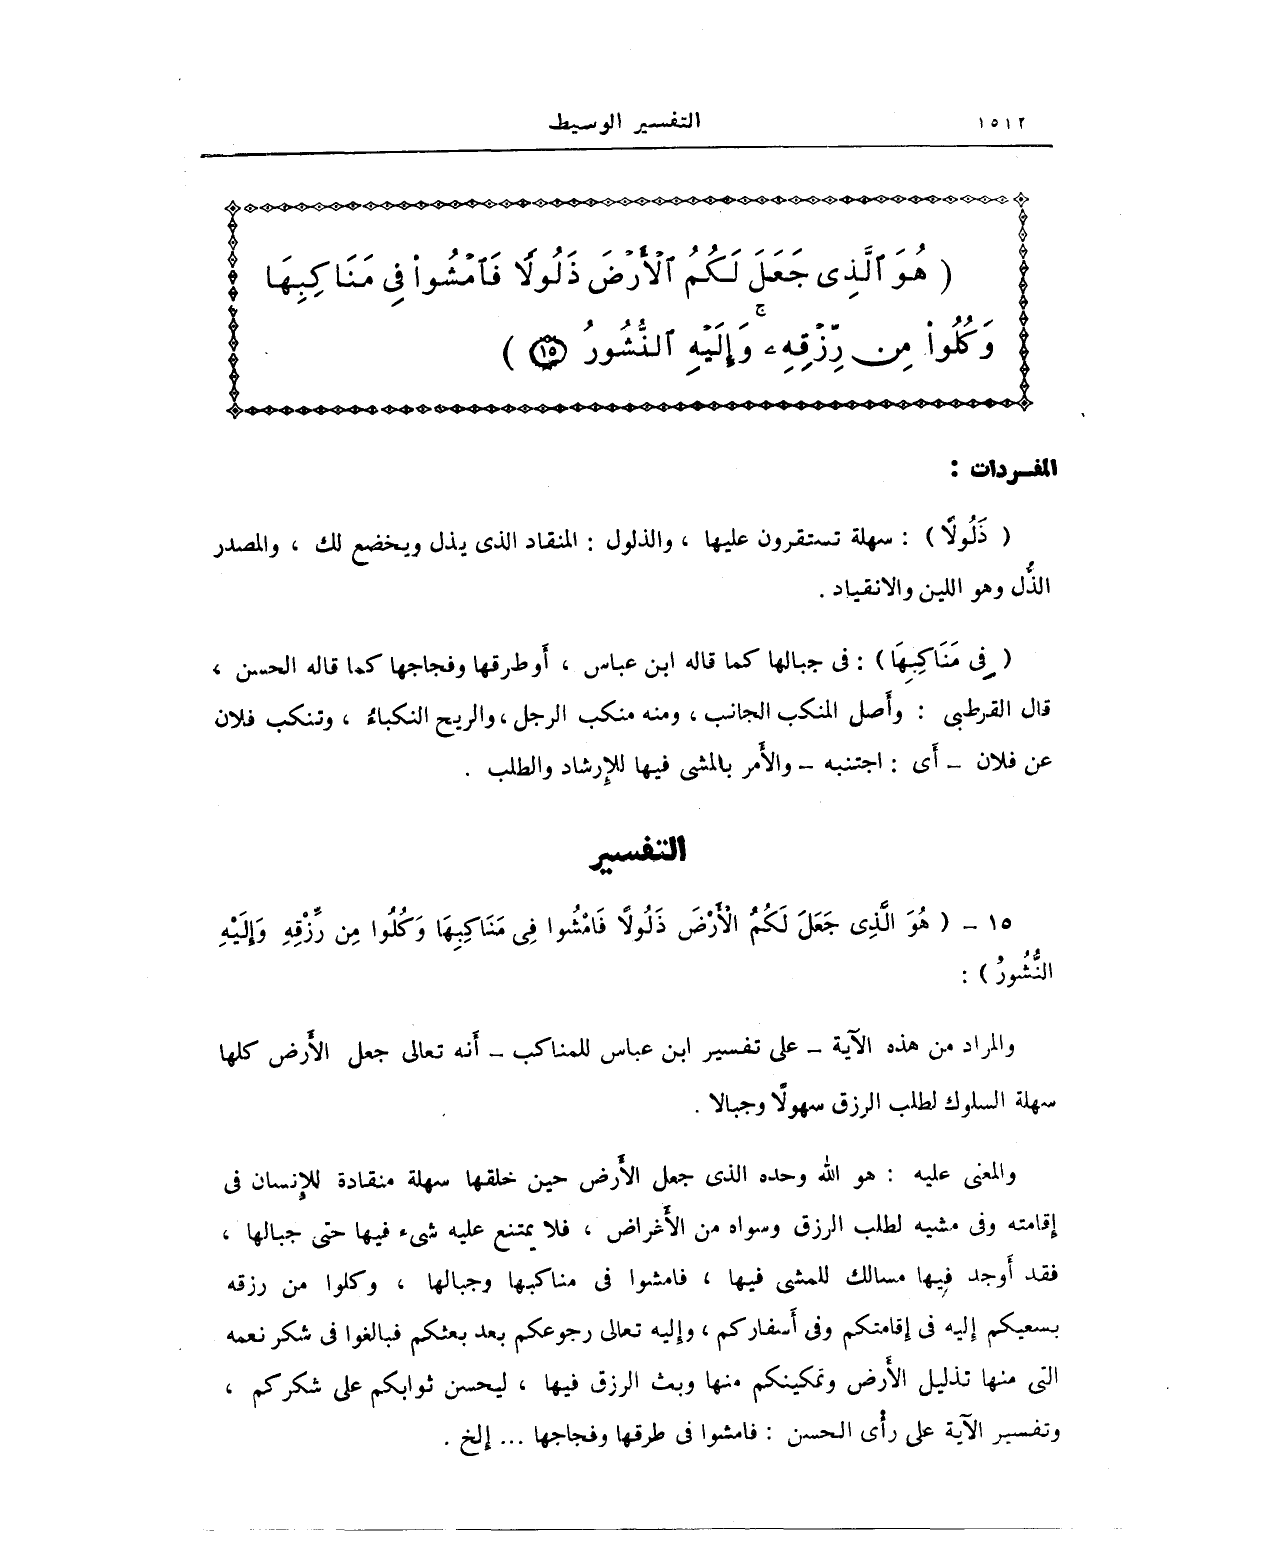 ١٥١٢
التفسير الوسيط
( هُوَ ٱلَّذِى جَعَلَ لَكُمُ ٱلْأَرْضَ ذَلُولًا فَٱمْشُوا۟ فِى مَنَاكِبِهَا
وَكُلُوا۟ مِن رِّزْقِهِۦ ۚ وَإِلَيْهِ ٱلنُّشُورُ ١٥ )
المفـردات :
( ذَلُولًا ) : سهلة تستقرون عليها ، والذلول : المنقاد الذى يذل ويخضع لك ، والمصدر
الذُّل وهو اللين والانقياد .
( فِى مَنَاكِبِهَا ) : فى جبالها كما قاله ابن عباس ، أو طرقها وفجاجها كما قاله الحسن ،
قال القرطبى : وأصل المنكب الجانب ، ومنه منكب الرجل ، والريح النكباءُ ، وتنكب فلان
عن فلان – أى : اجتنبه – والأمر بالمشى فيها للإرشاد والطلب .
التفسير
١٥ – ( هُوَ الَّذِى جَعَلَ لَكُمُ الْأَرْضَ ذَلُولًا فَامْشُوا فِى مَنَاكِبِهَا وَكُلُوا مِن رِّزْقِهِ وَإِلَيْهِ
النُّشُورُ ) :
والمراد من هذه الآية – على تفسير ابن عباس للمناكب – أنه تعالى جعل الأرض كلها
سهلة السلوك لطلب الرزق سهولًا وجبالا .
والمعنى عليه : هو الله وحده الذى جعل الأرض حين خلقها سهلة منقادة للإنسان فى
إقامته وفى مشيه لطلب الرزق وسواه من الأغراض ، فلا يمتنع عليه شىء فيها حتى جبالها ،
فقد أوجد فيها مسالك للمشى فيها ، فامشوا فى مناكبها وجبالها ، وكلوا من رزقه
بسعيكم إليه فى إقامتكم وفى أسفاركم ، وإليه تعالى رجوعكم بعد بعثكم فبالغوا فى شكر نعمه
التى منها تذليل الأرض وتمكينكم منها وبث الرزق فيها ، ليحسن ثوابكم على شكركم ،
وتفسير الآية على رأى الحسن : فامشوا فى طرقها وفجاجها ... إلخ .